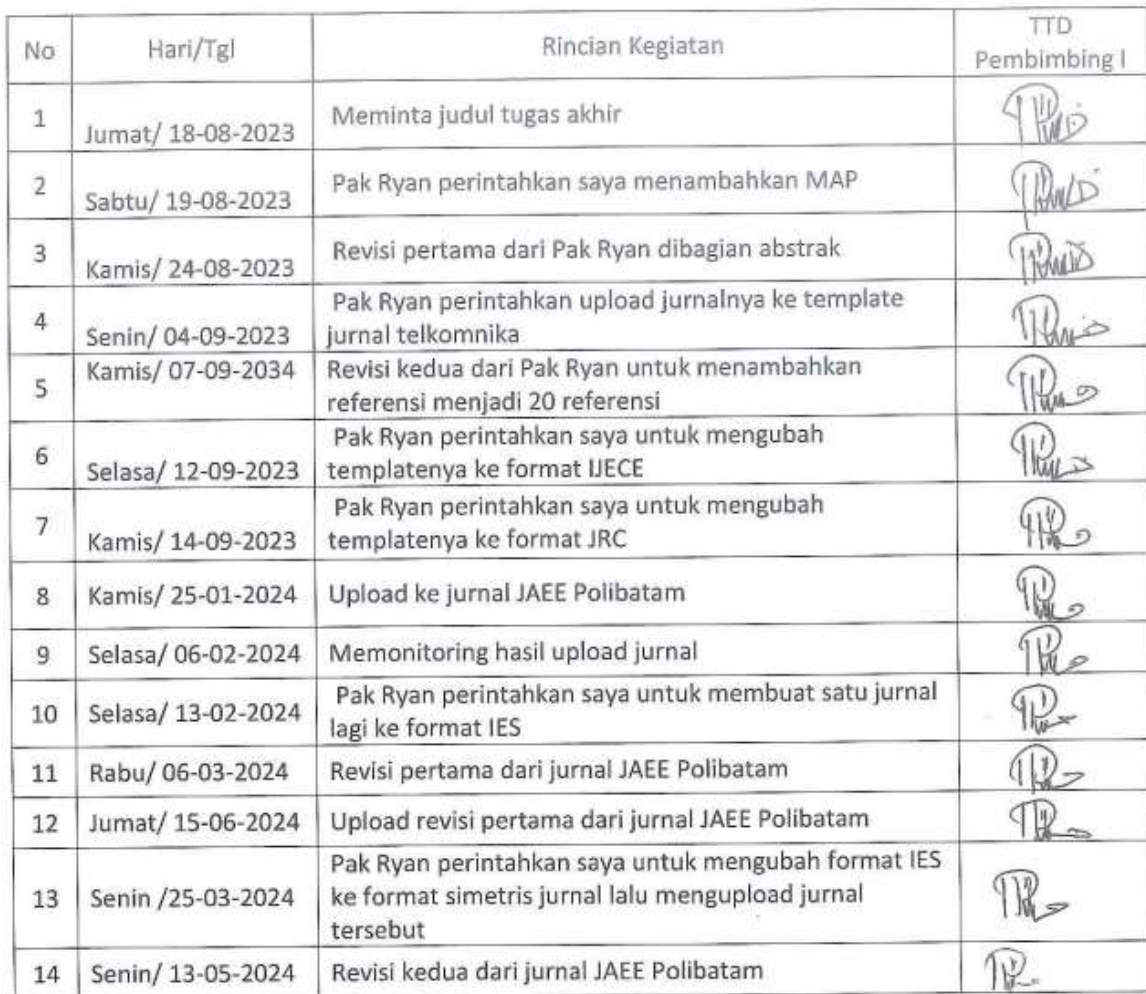 No Hari/Tgl Rincian Kegiatan TTD
Pembimbing I
1 Jumat/ 18-08-2023 Meminta judul tugas akhir
2 Sabtu/ 19-08-2023 Pak Ryan perintahkan saya menambahkan MAP
3 Kamis/ 24-08-2023 Revisi pertama dari Pak Ryan dibagian abstrak
4 Senin/ 04-09-2023 Pak Ryan perintahkan upload jurnalnya ke template
jurnal telkomnika
5 Kamis/ 07-09-2034 Revisi kedua dari Pak Ryan untuk menambahkan
referensi menjadi 20 referensi
6 Selasa/ 12-09-2023 Pak Ryan perintahkan saya untuk mengubah
templatenya ke format IJECE
7 Kamis/ 14-09-2023 Pak Ryan perintahkan saya untuk mengubah
templatenya ke format JRC
8 Kamis/ 25-01-2024 Upload ke jurnal JAEE Polibatam
9 Selasa/ 06-02-2024 Memonitoring hasil upload jurnal
10 Selasa/ 13-02-2024 Pak Ryan perintahkan saya untuk membuat satu jurnal
lagi ke format IES
11 Rabu/ 06-03-2024 Revisi pertama dari jurnal JAEE Polibatam
12 Jumat/ 15-06-2024 Upload revisi pertama dari jurnal JAEE Polibatam
13 Senin /25-03-2024 Pak Ryan perintahkan saya untuk mengubah format IES
ke format simetris jurnal lalu mengupload jurnal
tersebut
14 Senin/ 13-05-2024 Revisi kedua dari jurnal JAEE Polibatam